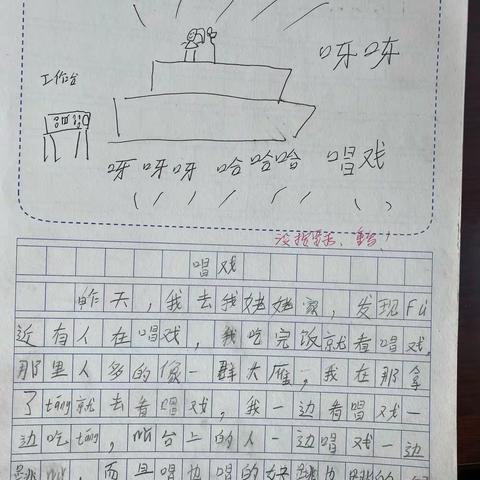 呀呀
工作台
呀呀呀 哈哈哈 唱戏
唱戏
昨天，我去我姥姥家，发现Fù
近有人在唱戏，我吃完饭就看唱戏，
那里人多的像一群大雁，我在那拿
了táng就去看唱戏，我一边看唱戏一
边吃táng，听台上的人一边唱戏一边
，而且唱也唱的好跳也跳的